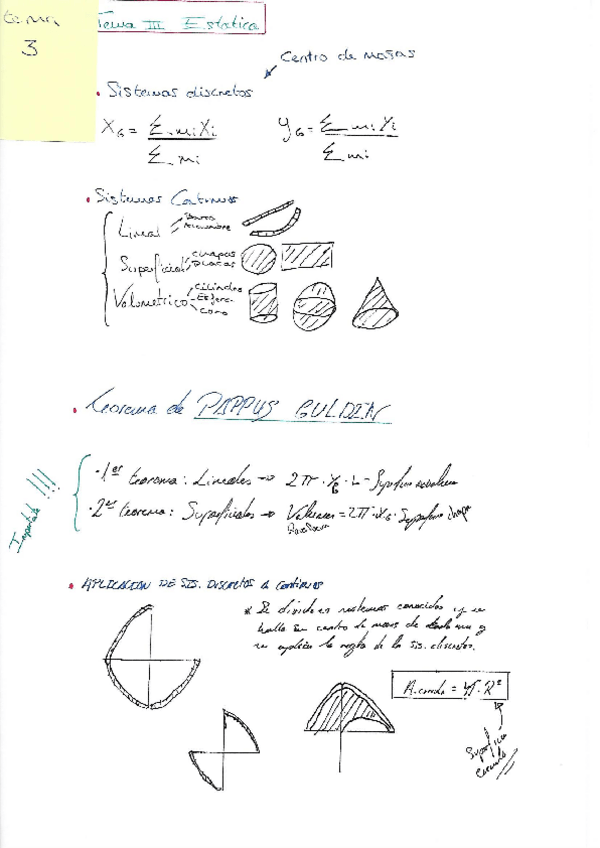 tema
3
Tema III Estatica
Centro de masas
• Sistemas discretos
X_G = Σ mi Xi / Σ mi    Y_G = Σ mi Yi / Σ mi
• Sistemas Continuos
Lineal
Superficial chapas Placas
Volumetrico Cilindro
Esfera
Cono
• Teorema de PAPPUS GULDIN
Importante !!!
• 1er teorema: Lineales → 2π · Y_G · L =
• 2º teorema: Superficiales → Volumen = 2π · X_G · Superficie chapa
• APLICACION DE SIS. DISCRETOS A Continuos
* Se divide en sistemas conocidos y se
halla su centro de masas de cada uno y
se aplica la regla de los sis. discretos.
A circulo = π · R²
Superficie
circulo